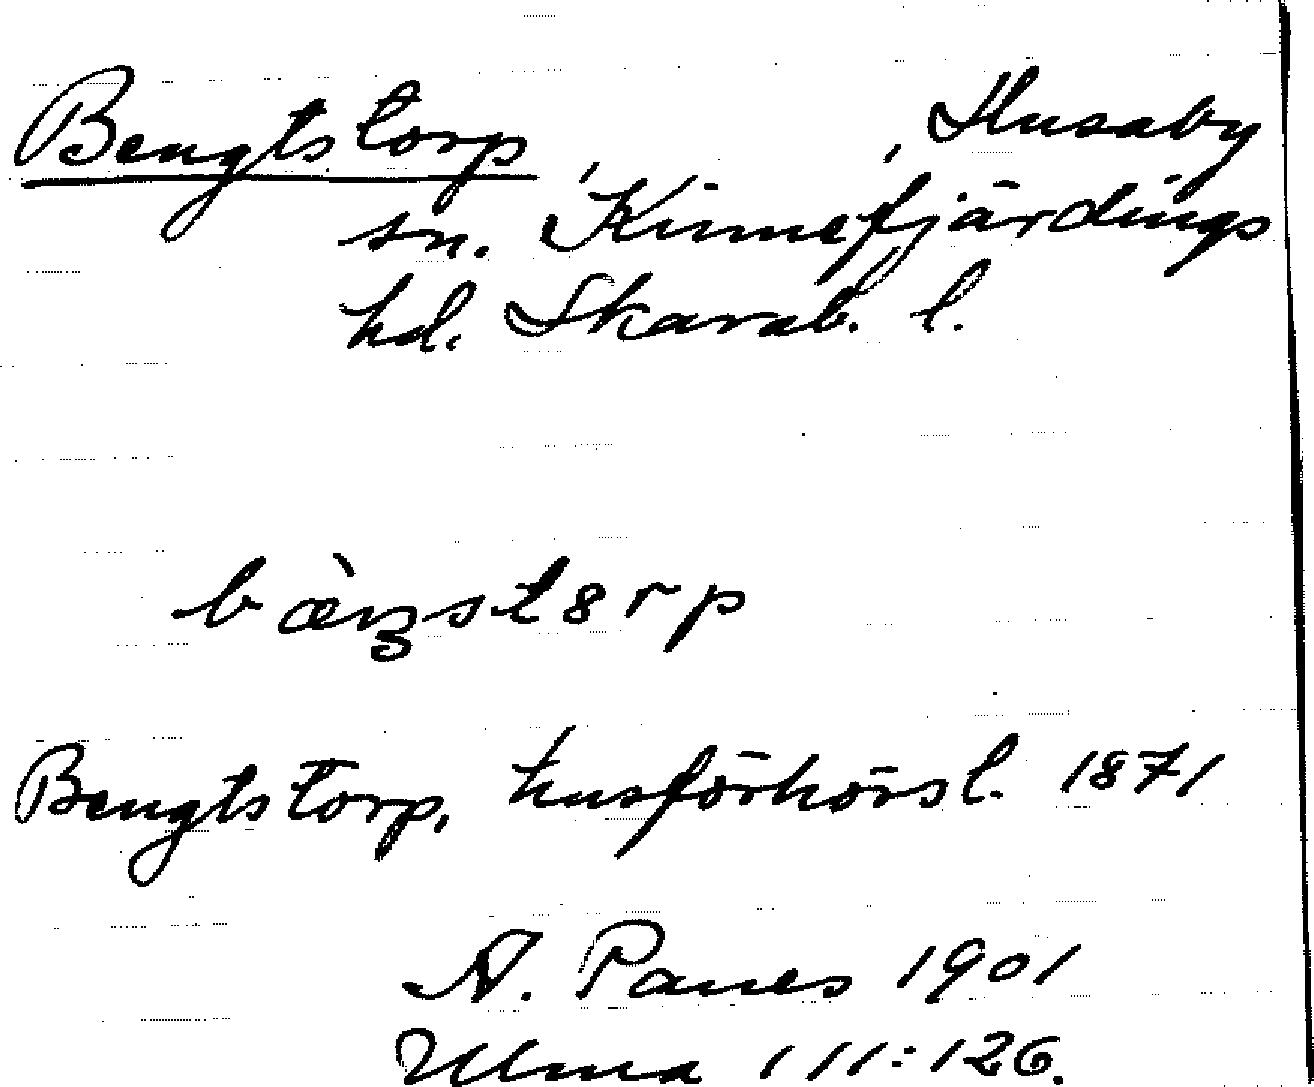 Bengtstorp, , Husaby
sn. Kinnefjärdings
hd. Skarab. l.
Bengtstorp, husförhörsl. 1871
A. Panes 1901
Ulma 111:126.